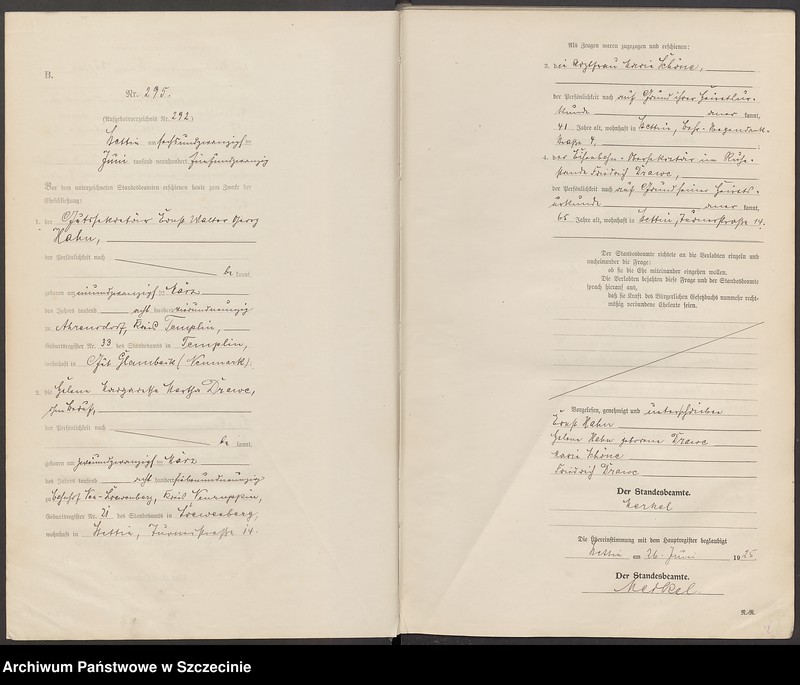 B.
Nr. 295.
(Aufgebotverzeichnis Nr. 292)
Stettin am sechsundzwanzigsten
Juni tausend neunhundert fünfundzwanzig
Vor dem unterzeichneten Standesbeamten erschienen heute zum Zwecke der
Eheschließung:
1. der Gutssekretär Ernst Walter Georg
Hahn,
der Persönlichkeit nach
be kannt,
geboren am einundzwanzigsten März
des Jahres tausend acht hundert vierundneunzig
zu Ahrensdorf, Kreis Templin,
Geburtsregister Nr. 33 des Standesamts in Templin,
wohnhaft in Gut Glambeck (Neumark).
2. die Helene Margarethe Martha Drawe,
ohne Beruf,
der Persönlichkeit nach
be kannt,
geboren am zweiundzwanzigsten März
des Jahres tausend acht hundert siebenundneunzig
zu Bahnhof Neu-Löwenberg, Kreis Neuruppin,
Geburtsregister Nr. 21 des Standesamts in Loewenberg,
wohnhaft in Stettin, Turnerstraße 14.
Als Zeugen waren zugezogen und erschienen:
3. die Marie Schöne,
der Persönlichkeit nach auf Grund ihrer Heiratsur-
kunde aner kannt,
41 Jahre alt, wohnhaft in Stettin,
straße 4,
4. der Eisenbahn-Obersekretär im Ruhe-
stande Friedrich Drawe,
der Persönlichkeit nach auf Grund seiner Heirats-
urkunde aner kannt,
65 Jahre alt, wohnhaft in Stettin, Turnerstraße 14.
Der Standesbeamte richtete an die Verlobten einzeln und
nacheinander die Frage:
ob sie die Ehe miteinander eingehen wollen.
Die Verlobten bejahten diese Frage und der Standesbeamte
sprach hierauf aus,
daß sie kraft des Bürgerlichen Gesetzbuchs nunmehr recht-
mäßig verbundene Eheleute seien.
Vorgelesen, genehmigt und unterschrieben
Ernst Hahn
Helene Hahn geborene Drawe
Marie Schöne
Friedrich Drawe
Der Standesbeamte.
Merkel
Die Übereinstimmung mit dem Hauptregister beglaubigt
Stettin am 26. Juni 1925.
Der Standesbeamte.
Merkel.
Archiwum Państwowe w Szczecinie